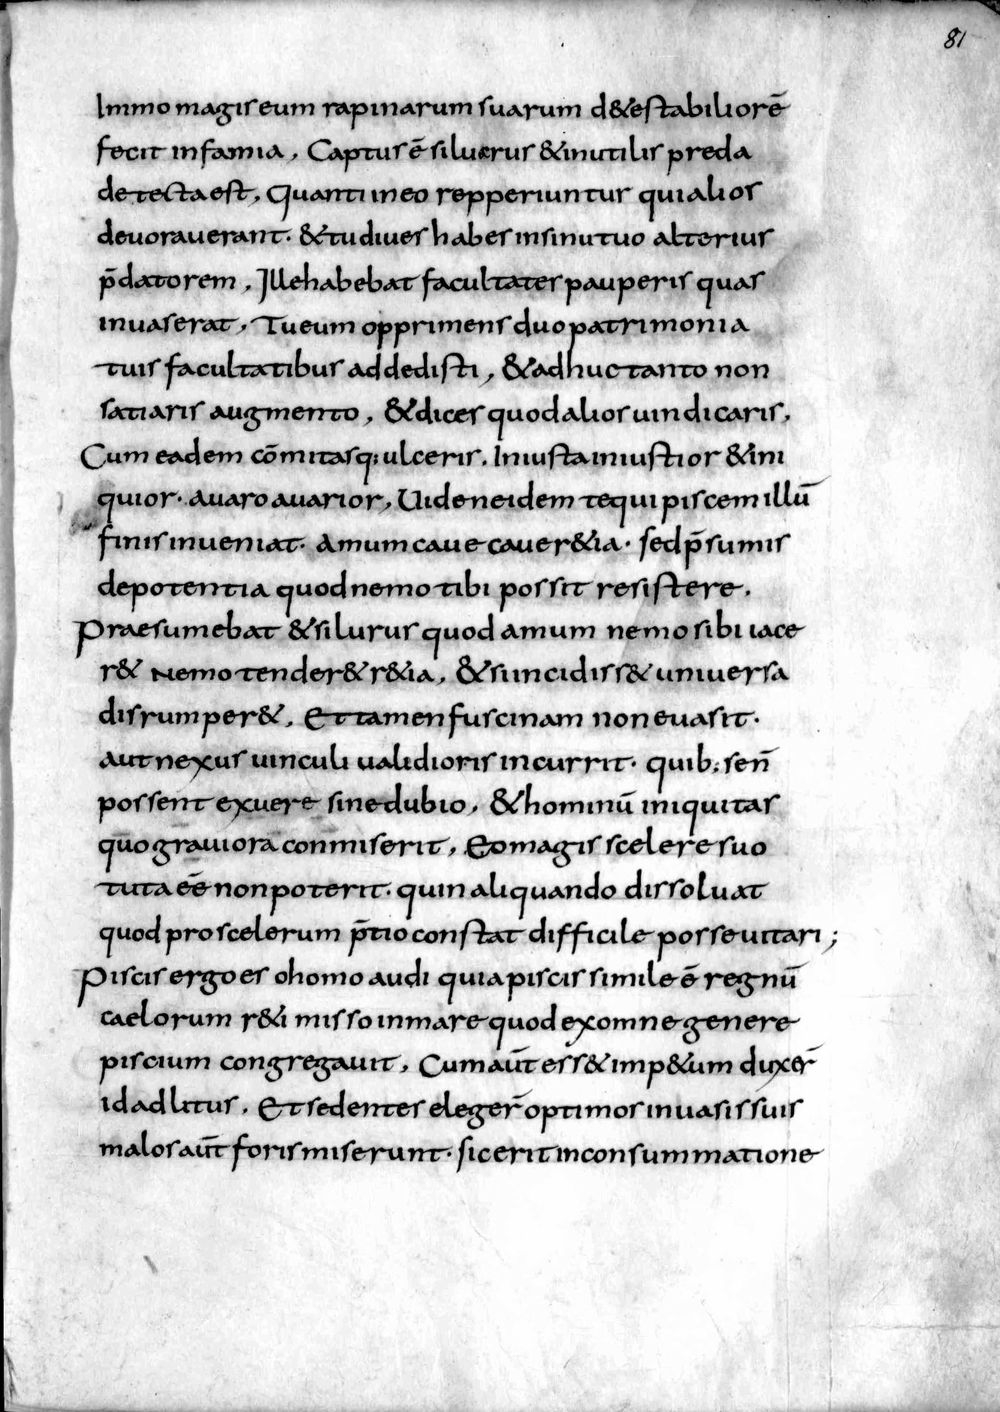 81
Immo magis eum rapinarum suarum d&estabiliorē
fecit infamia, Captus ē silurus &inutilis preda
detecta est, Quanti in eo repperiuntur qui alios
devoraverant. &tu dives habes in sinu tuo alterius
p̄datorem, Ille habebat facultates pauperis quas
invaserat, Tu eum opprimens duo patrimonia
tuis facultatibus addedisti, &adhuc tanto non
satiaris augmento, &dices quod alios vindicaris,
Cum eadem cōmitasq; ulceris. Iniusta iniustior &ini
quior. avaro avarior, Vide ne idem te qui piscem illū
finis inveniat. Amum cave cave r&ia. sed p̄sumis
de potentia quod nemo tibi possit resistere.
Praesumebat &silurus quod amum nemo sibi iace
r& Nemo tender& r&ia, &si incidiss& universa
disrumper&, Et tamen fuscinam non evasit.
Aut nexus vinculi validioris incurrit. quib; se n̄
possent exuere sine dubio, &hominū iniquitas
quo graviora conmiserit, Eo magis scelere suo
tuta eē non poterit. quin aliquando dissolvat
quod pro scelerum p̄tio constat difficile posse vitari;
Piscis ergo es o homo audi quia piscis simile ē regnū
caelorum r&i misso in mare quod ex omne genere
piscium congregavit, Cum aūt ess& imp&um duxer̄
id ad litus, Et sedentes eleger̄ optimos in vasis suis
malos aūt foris miserunt. sic erit in consummatione